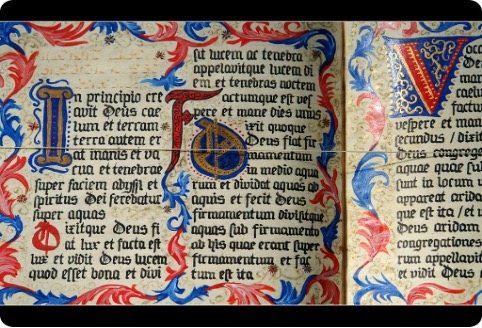 In principio cre
avit Deus cae
lum et terram
terra autem er
at inanis et va
cua et tenebrae
super faciem abyssi et
spiritus Dei ferebatur
super aquas
Dixitque Deus fi
at lux et facta est
lux et vidit Deus lucem
quod esset bona et divi
sit lucem ac tenebra
appelavitque lucem di
em et tenebras noctem
Factumque est ves
pere et mane dies unus
Dixit quoque
Deus fiat fir
mamentum
in medio aqua
rum et dividat aquas ab
aquis et fecit Deus
firmamentum divisitque
aquas sub firmamento
ab his quae erant super
firmamentum et fac
tum est ita
Voca
Deus
mam
caelu
factu
vespere et man
secundus / dixit
Deus congrege
aquae quae sub
sunt in locum u
appareat arida
que est ita / et v
Deus aridam
congregationes
rum appellavi
et vidit Deus